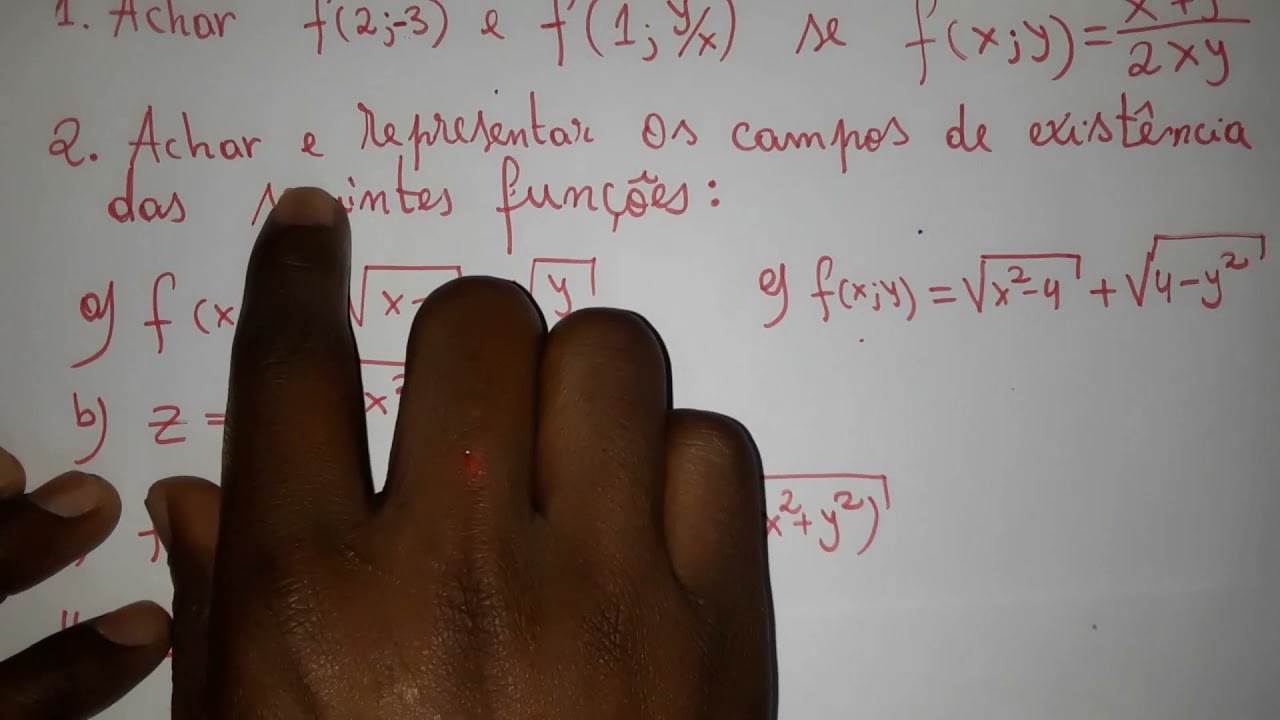 1. Achar f(2;-3) e f(1; y/x) se f(x;y)=x+y/2xy
2. Achar e representar os campos de existência
das funções:
a) f(x √x- √y
e) f(x;y) = √x²-4 + √4-y²
b) z = x²
x²+y²)